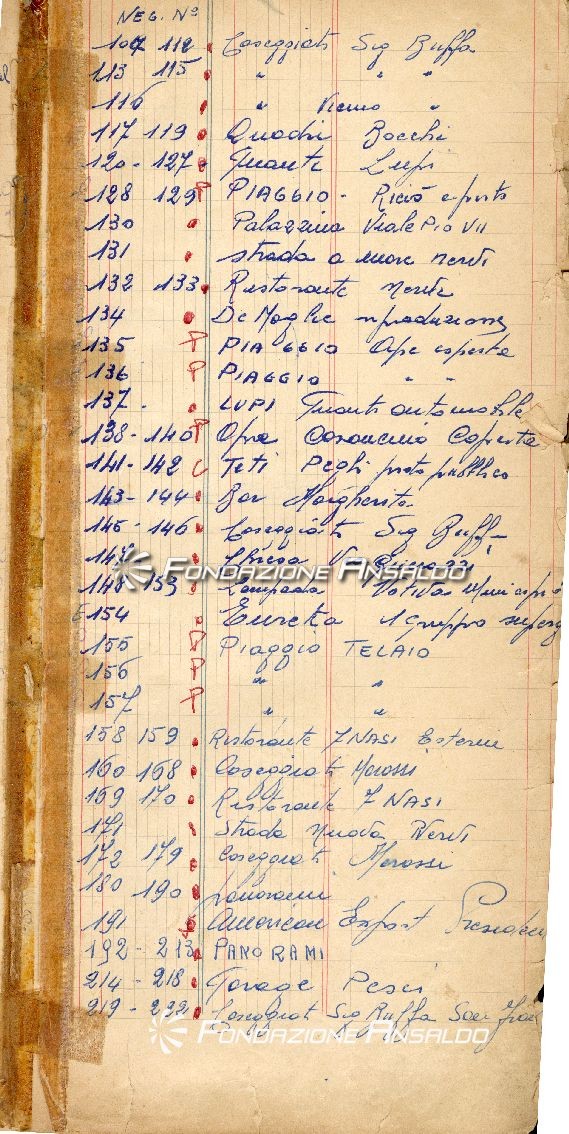 NEG. Nº
107 112 Caseggiati Sig Buffa
113 115 " " "
116 " Vicino "
117 119 Quadri Bocchi
120 - 127 Guanti Lupi
128 129 P PIAGGIO -
130 Palazzina Viale PIO VII
131 strada a mare nervi
132 133 Ristorante nervi
134 De Moglie riproduzione
135 P PIAGGIO Ape coperta
136 P PIAGGIO " "
137 LUPI Guanti automobile
138 - 140 P Ape Coperta
141 - 142 Teti Pegli posto pubblico
143 - 144 Bar Margherita
145 - 146 Caseggiati Sig Buffa
147 Chiesa Via
148 153 Lampada Votiva Municipio
FONDAZIONE ANSALDO
154 Eureka 1 gruppo
155 P Piaggio TELAIO
156 P " "
157 P " "
158 159 Ristorante 7 NASI Esterni
160 168 Caseggiati Morassi
169 170 Ristorante 7 NASI
171 Strada Nuova Nervi
172 179 Caseggiati Morassi
180 190 panorami
191 American Export
192 - 213 PANORAMI
214 - 218 Garage Pesci
219 - 222 Caseggiati Sig Buffa
FONDAZIONE ANSALDO